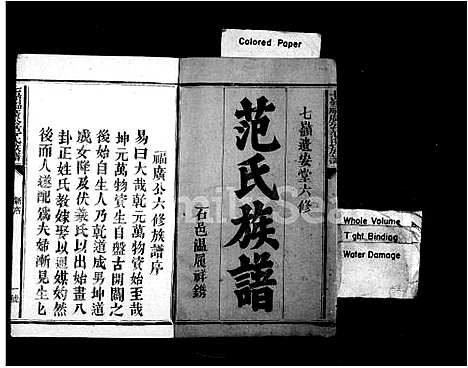 Colored Paper
七嶺遺安堂六修
范氏族譜
石邑温履祥鐫
Whole Volume
Tight Binding
Water Damage
福廣公六修族譜序
易曰大哉乾元萬物資始至哉
坤元萬物資生自盤古開闢之
後始自生人乃乾道成男坤道
成女降及伏羲氏以出始畫八
卦正姓氏教嫁娶以通媒妁然
後而人遂配為夫婦漸見生乜